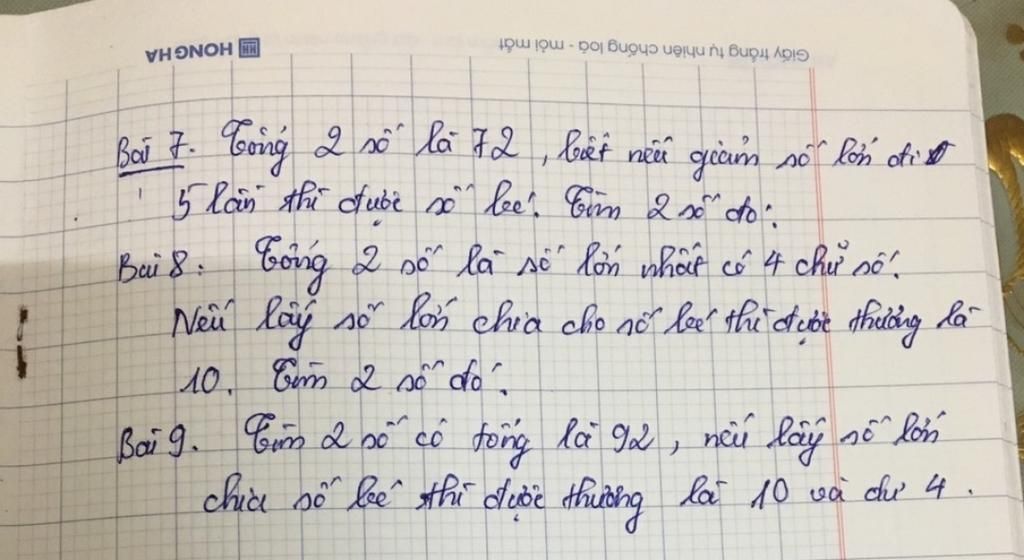 Giấy trắng tự nhiên chống loá - mỏi mắt
HONG HA
Bài 7. Tổng 2 số là 72, biết nếu giảm số lớn đi
5 lần thì được số bé. Tìm 2 số đó.
Bài 8: Tổng 2 số là số lớn nhất có 4 chữ số.
Nếu lấy số lớn chia cho số bé thì được thương là
10. Tìm 2 số đó.
Bài 9. Tìm 2 số có tổng là 92, nếu lấy số lớn
chia số bé thì được thương là 10 và dư 4.